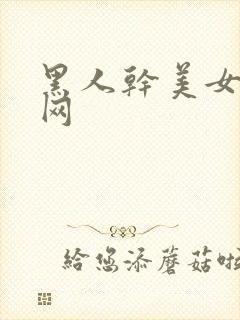 黑人幹美女
网
給您添蘑菇啦